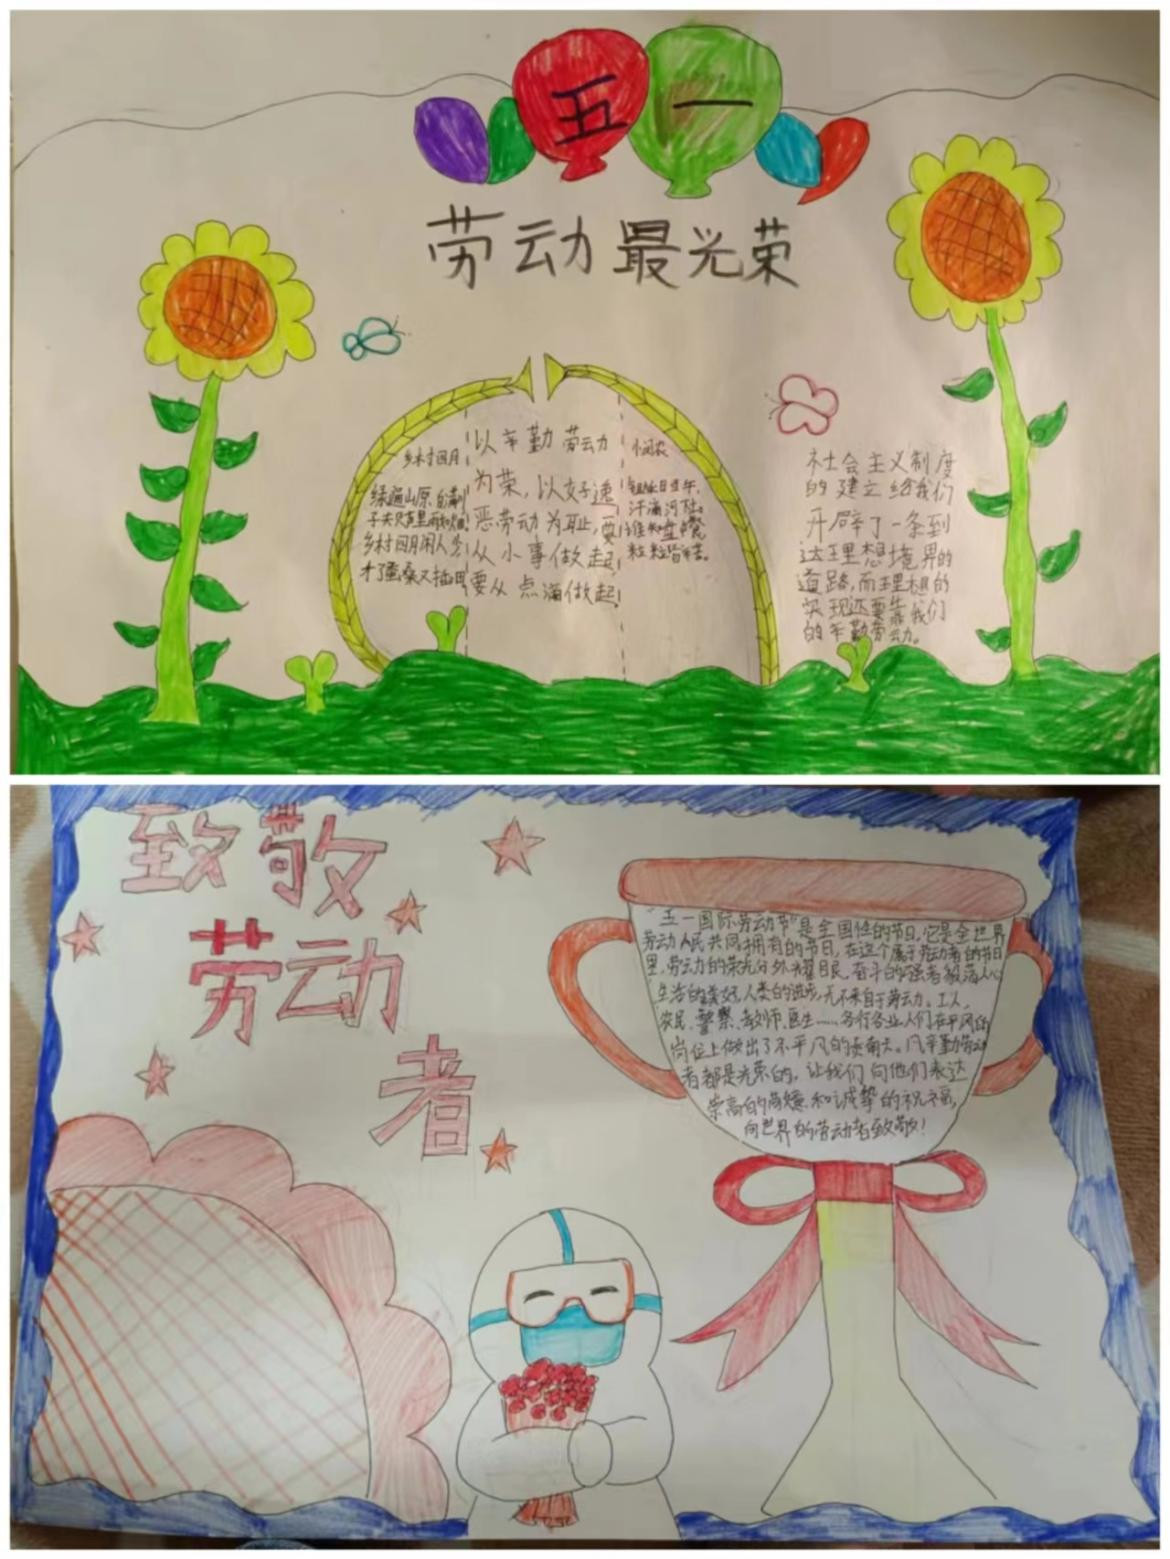 五一
劳动最光荣
乡村四月
绿遍山原白满
乡村四月闲人少
才了蚕桑又插田
以辛勤劳动
为荣,以好逸
恶劳动为耻,要
从小事做起,
要从点滴做起!
悯农
汗滴河下土。
谁知盘中餐
粒粒皆辛苦。
社会主义制度
的建立给我们
开辟了一条到
达理想境界的
道路,而理想的
实现还要靠我们
的辛勤劳动。
致敬
劳动
者
"五一国际劳动节"是全国性的节日,它是全世界
劳动人民共同拥有的节日,在这个属于劳动者的节日
里,劳动的荣光分外耀眼,奋斗的强者
生活的美好,人类的进步,无不来自于劳动。工人,
农民、警察、教师、医生……各行各业人们在平凡的
岗位上做出了不平凡的贡献。凡辛勤劳动
者都是光荣的,让我们向他们表达
崇高的 和诚挚的祝福,
向世界的劳动者致敬!